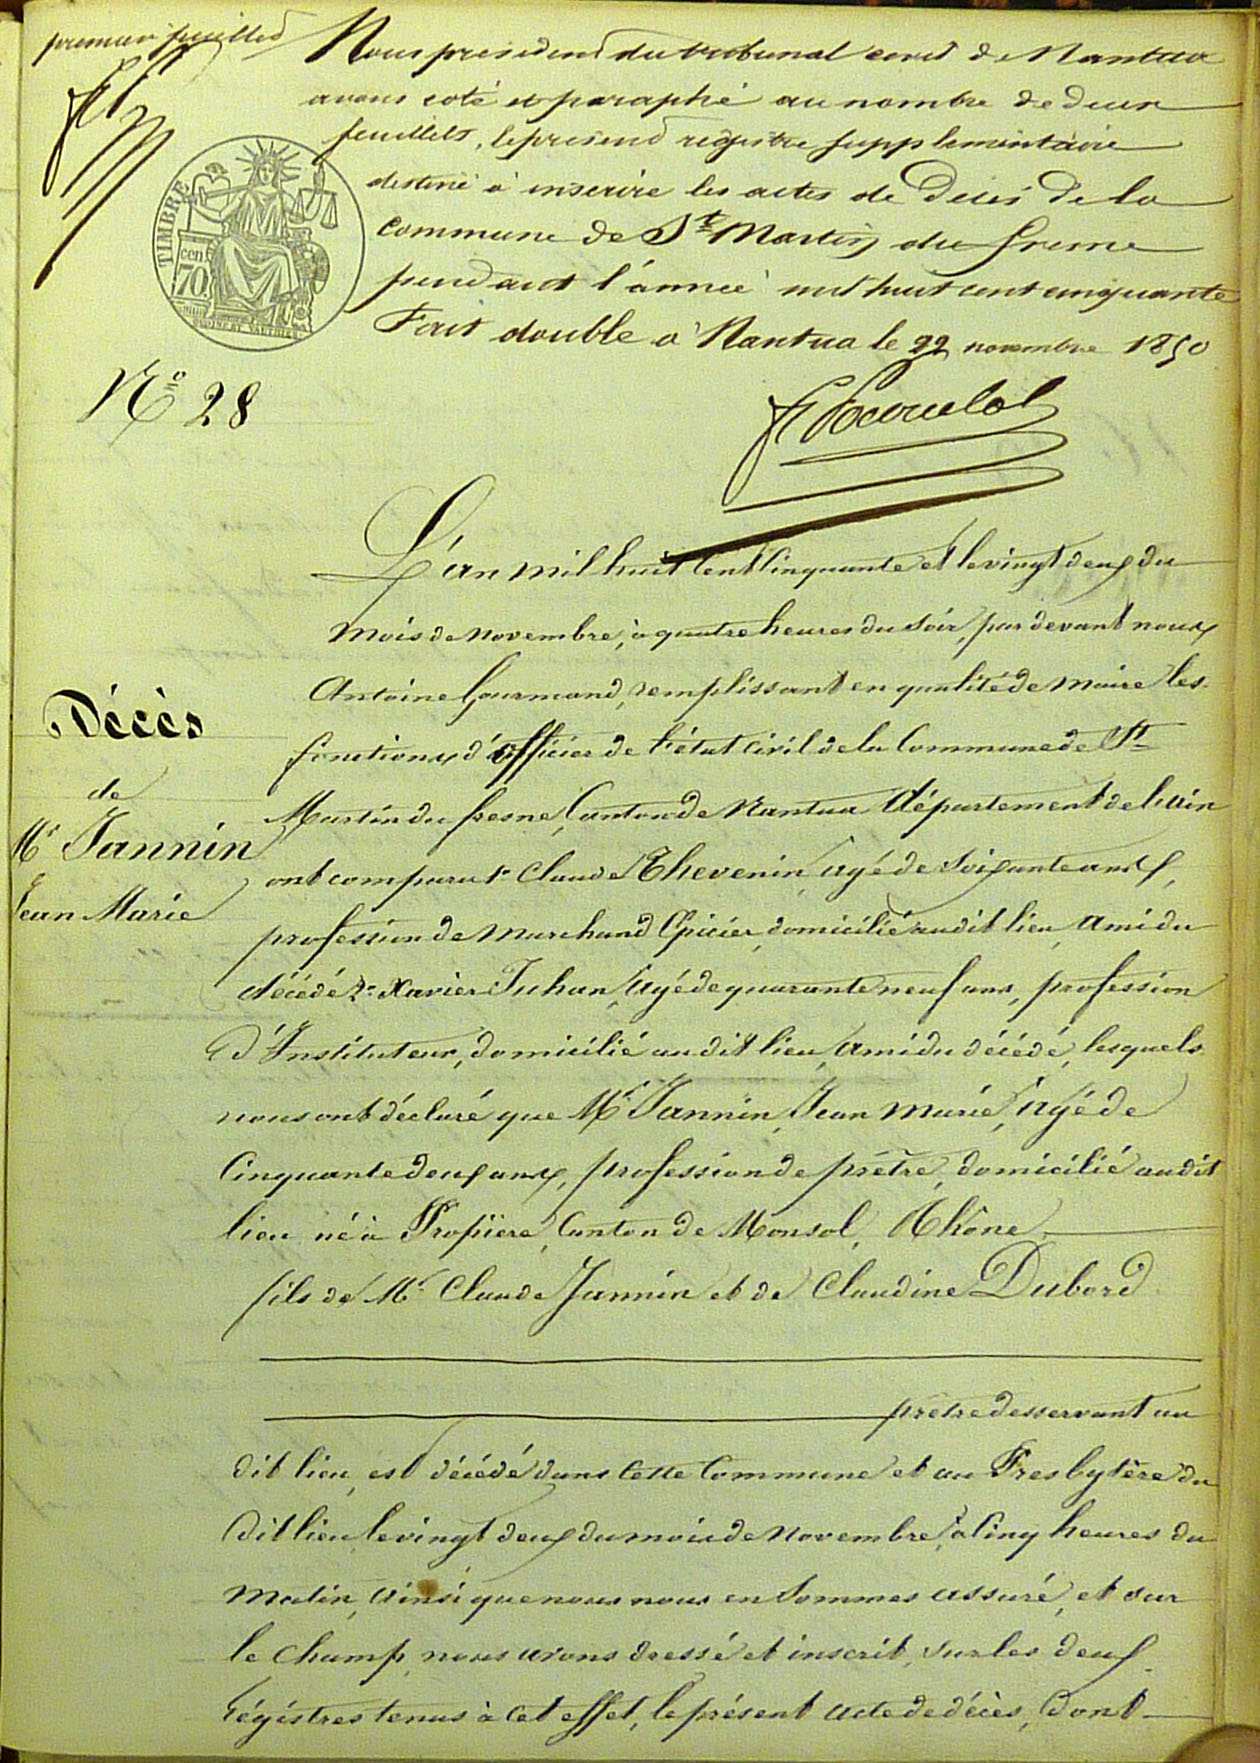 premier feuillet
Nous président du tribunal civil de Nantua
avons coté et paraphé au nombre de deux
feuillets, le présent registre supplémentaire
destiné à inscrire les actes de Décès de la
commune de St Martin du fresne
pendant l'année mil huit cent cinquante
Fait double à Nantua le 22 novembre 1850
TIMBRE
70 cen.
No 28
L'an mil huit Cent Cinquante et le vingt deux du
mois de Novembre, à quatre heures du Soir, par devant nous
Antoine Gourmand, remplissant en qualité de Maire les
fonctions d'Officier de l'état Civil de la Commune de St
Martin du fresne, Canton de Nantua Département de l'Ain
ont comparu 1° Claude Thevenin, âgé de Soixante ans,
profession de Marchand Epicier, domicilié audit lieu, Ami du
décédé 2° Xavier Juhan, âgé de quarante neuf ans, profession
d'Instituteur, domicilié au dit lieu, Ami du décédé, lesquels
nous ont déclaré que Mr Jannin, Jean Marie, âgé de
Cinquante deux ans, profession de prêtre, domicilié audit
lieu né à Propière, Canton de Monsol, Rhône
fils de Mr Claude Jannin et de Claudine Dubord
prêtre desservant au
dit lieu, est décédé dans Cette Commune et au Presbytère du
dit lieu, le vingt deux du mois de Novembre, à Cinq heures du
Matin, Ainsi que nous nous en Sommes assuré, et sur
le Champ, nous avons dressé et inscrit, Sur les deux
régistres tenus à Cet effet, le présent acte de décès, Dont
Décès
de
Mr Jannin
Jean Marie